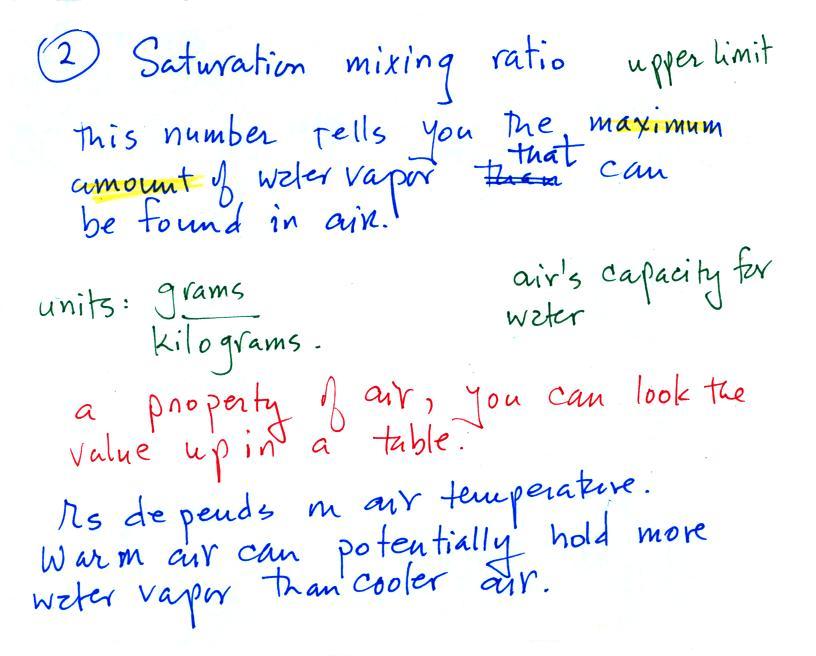 2 Saturation mixing ratio upper limit
This number tells you the maximum
amount of water vapor that can
be found in air.
units: grams
kilograms.
air's capacity for
water
a property of air, you can look the
value up in a table.
rs depends on air temperature.
Warm air can potentially hold more
water vapor than cooler air.